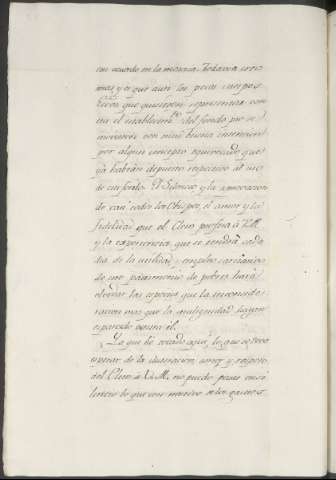 con acuerdo en la materia. Todavia creo
mas, y es que aun los pocos cuerpos
que quisieron representar con
tra el establecim.to del fondo pio se
movieron con mui buena intencion
por algun concepto equivocado que
ya habrán depuesto respectivo al uso
de este fondo. El Silencio y la aprobacion
de casi todos los Obispos, el amor y la
fidelidad que el Clero profesa à V.M.
y la experiencia que se tendrá cada
dia de la utilidad y empleo caritativo
de este patrimonio de pobres hará
olvidar las especies que la inconside
racion mas que la malignidad hayan
esparcido contra el.
Lo que he tocado aqui, lo que es
opinar de la ilustracion, amor y respeto
del Clero à V.M. no puedo pasar en si
lencio lo que con motivo de los gastos